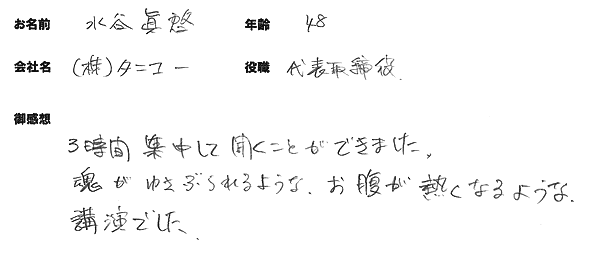 お名前 水谷眞啓 年齢 48
会社名 (株)タニコー 役職 代表取締役.
御感想
3時間 集中して聞くことができました。
魂が ゆさぶられるような、お腹が 熱くなるような、
講演でした。